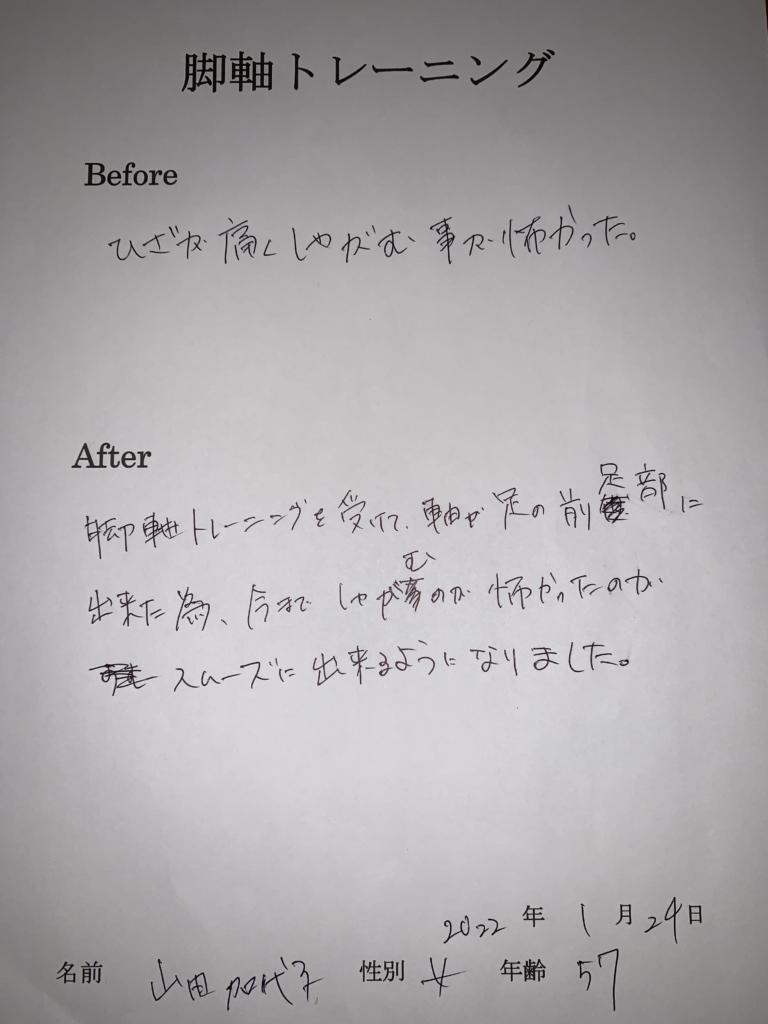 脚軸トレーニング
Before
ひざが痛くしゃがむ事が怖かった。
After
脚軸トレーニングを受けて、軸が足の前足部に
出来た為、今まで しゃがむのが 怖かったのが
スムーズに出来るようになりました。
2022 年 1 月 24 日
名前 山田加代子 性別 女 年齢 57